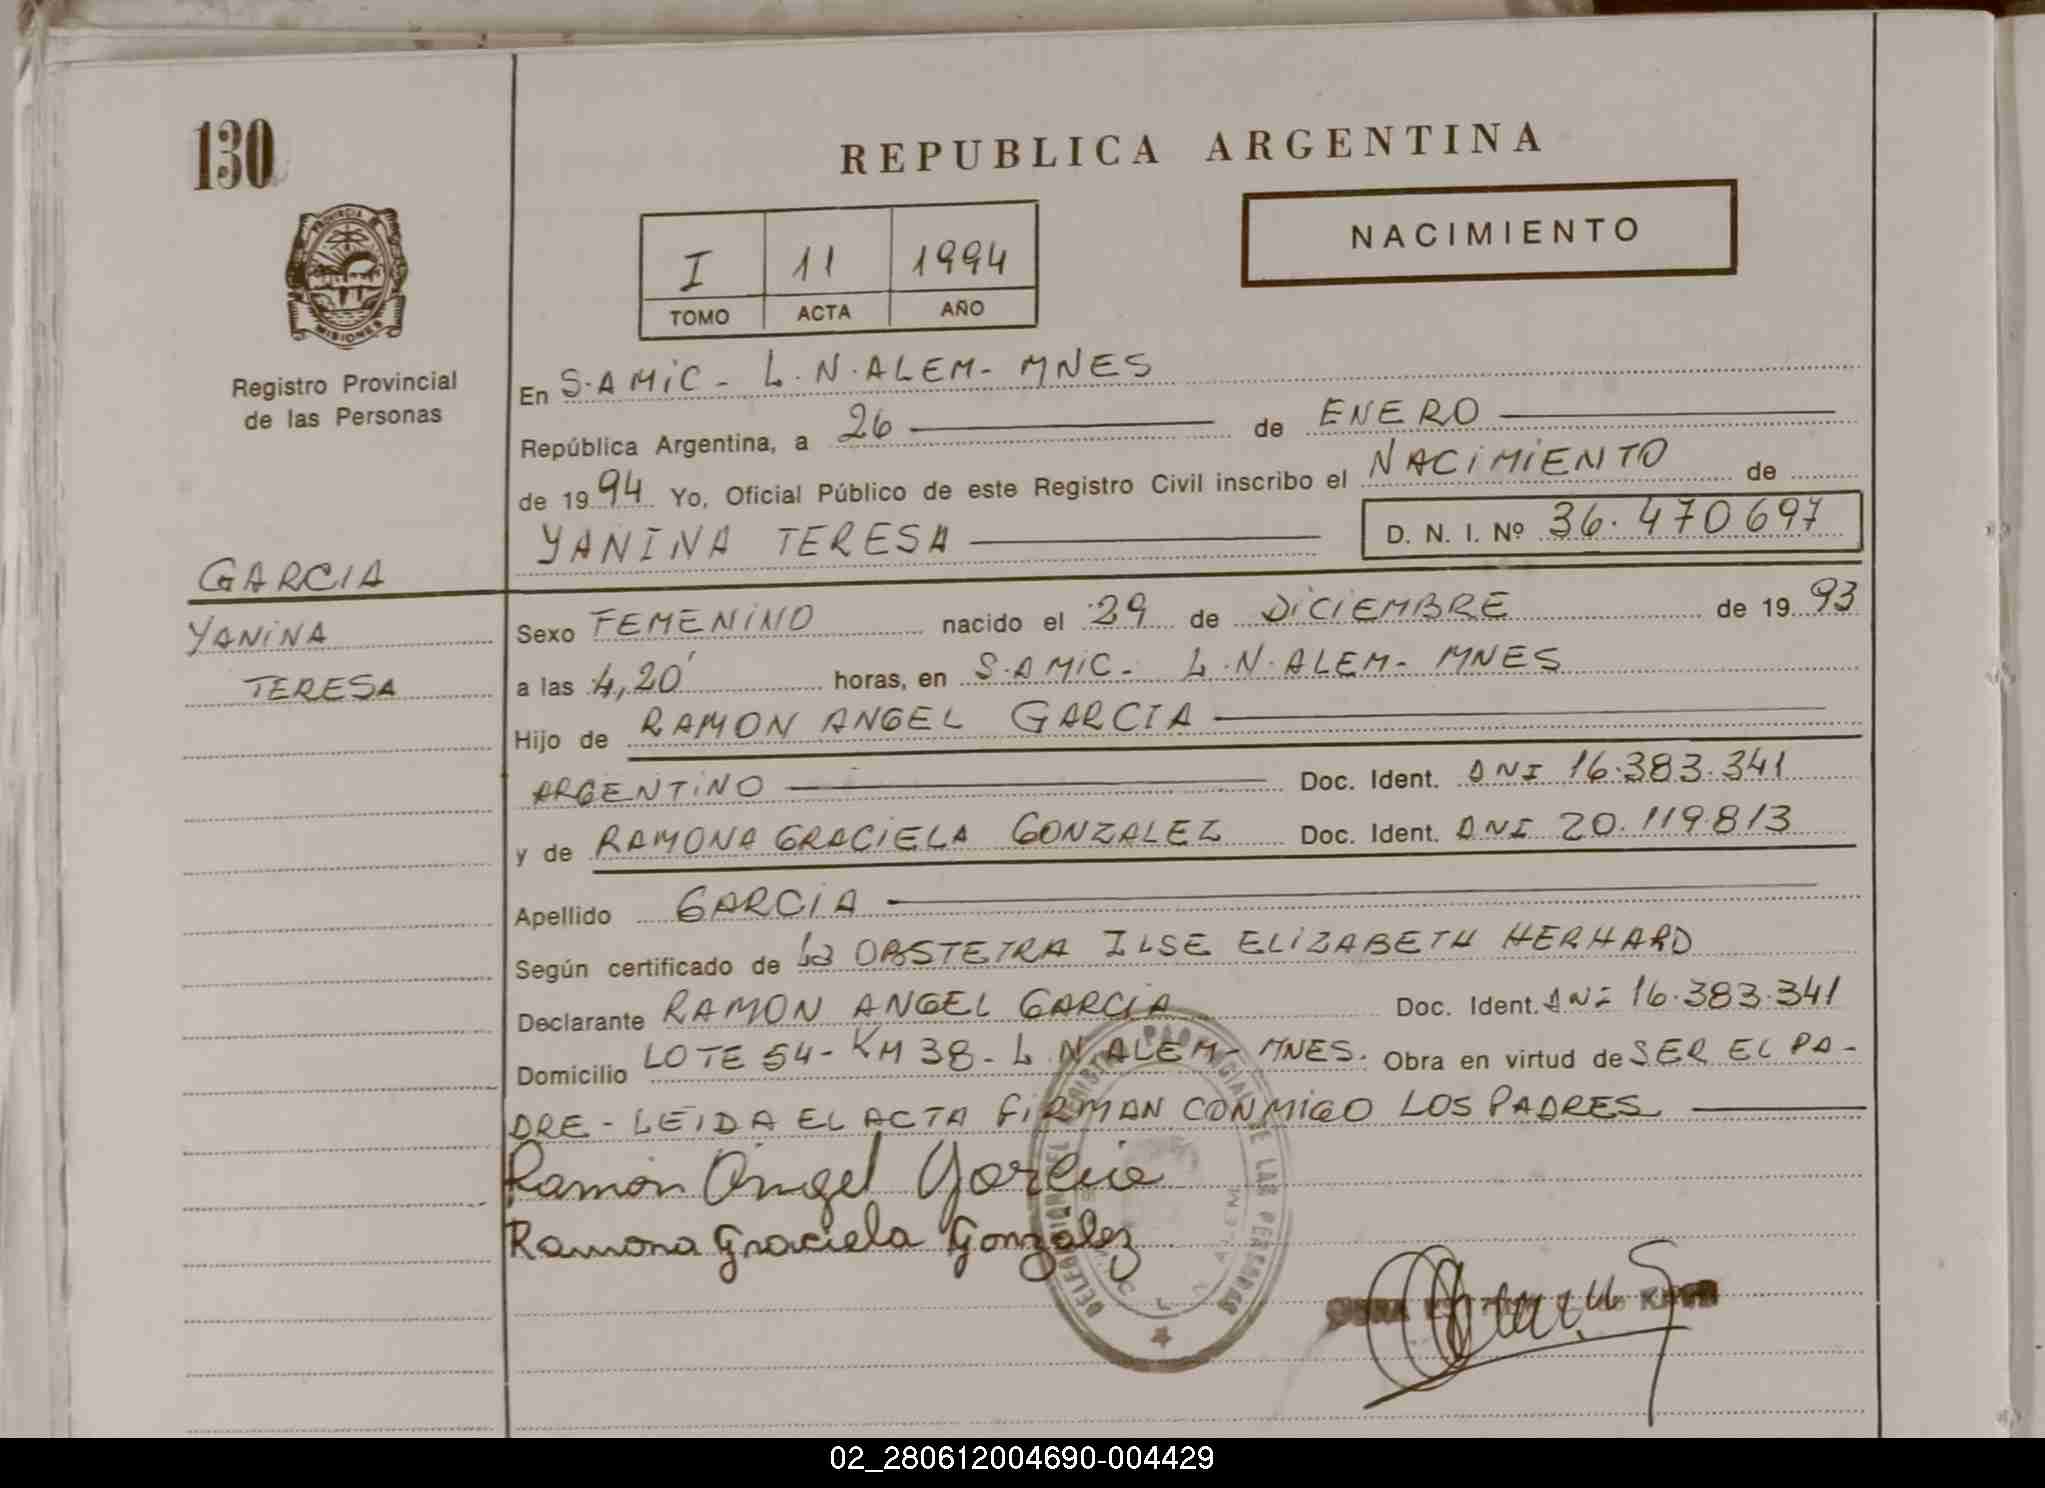 130
REPUBLICA ARGENTINA
PROVINCIA DE
MISIONES
Registro Provincial
de las Personas
NACIMIENTO
I 11 1994
TOMO ACTA AÑO
En S.AMIC - L.N.ALEM - MNES
República Argentina, a 26 de ENERO
de 1994 Yo, Oficial Público de este Registro Civil inscribo el NACIMIENTO de
YANINA TERESA D. N. I. Nº 36.470697
GARCIA
YANINA
TERESA
Sexo FEMENINO nacido el 29 de DICIEMBRE de 1993
a las 4,20' horas, en S.AMIC - L.N.ALEM - MNES
Hijo de RAMON ANGEL GARCIA
ARGENTINO Doc. Ident. DNI 16.383.341
y de RAMONA GRACIELA GONZALEZ Doc. Ident. DNI 20.119.813
Apellido GARCIA
Según certificado de La OBSTETRA ILSE ELIZABETH HERHARD
Declarante RAMON ANGEL GARCIA Doc. Ident. DNI 16.383.341
Domicilio LOTE 54 - KM 38 - L.N.ALEM - MNES. Obra en virtud de SER EL PA-
DRE - LEIDA EL ACTA FIRMAN CONMIGO LOS PADRES
Ramón Angel Garcia
Ramona Graciela Gonzalez
DELEGACION DEL REGISTRO PROVINCIAL DE LAS PERSONAS
02_280612004690-004429